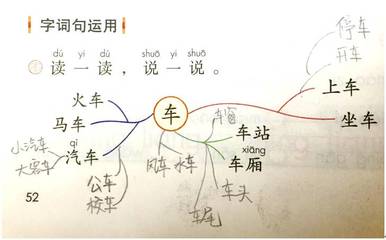 字词句运用
dú yi dú shuō yi shuō
读一读，说一说。
停车
开车
火车
马车
qì
汽车
小汽车
大客车
公车
校车
车
风车 水车
车窗
车站
xiāng
车厢
车头
车尾
上车
坐车
52